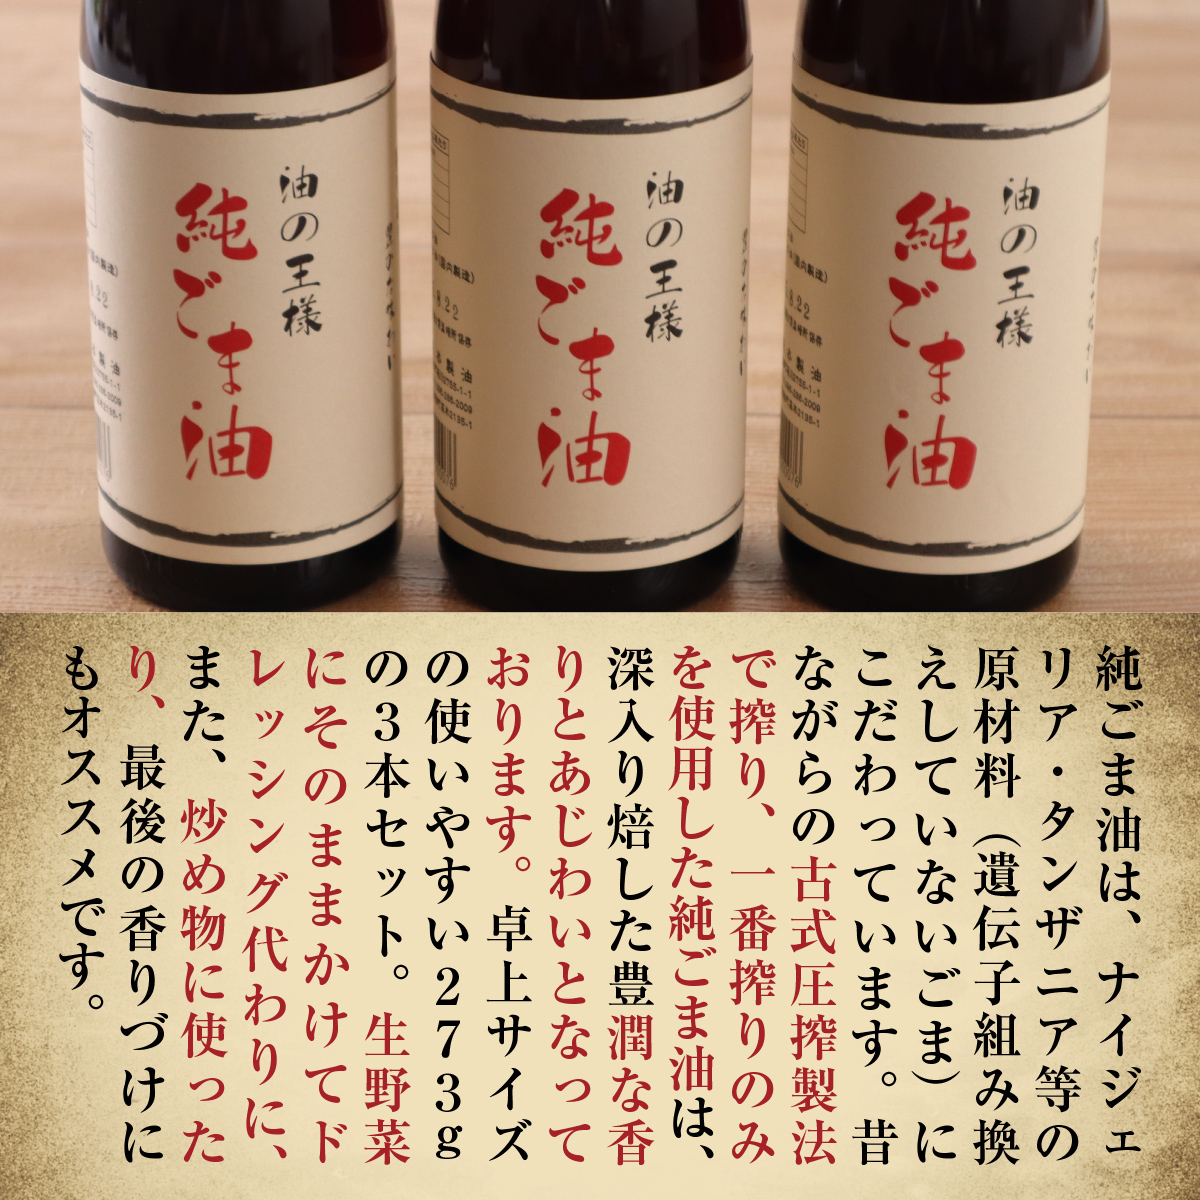 油の王様
純ごま油
国内製造)
.8.22
製油
2755-1-1
-096-2009
2195-1
油の王様
純ごま油
国内製造)
.8.22
製油
2755-1-1
-096-2009
2195-1
油の王様
純ごま油
純ごま油は、ナイジェ
リア・タンザニア等の
原材料(遺伝子組み換
えしていないごま)に
こだわっています。昔
ながらの古式圧搾製法
で搾り、一番搾りのみ
を使用した純ごま油は、
深入り焙した豊潤な香
りとあじわいとなって
おります。卓上サイズ
の使いやすい273g
の3本セット。生野菜
にそのままかけてド
レッシング代わりに、
また、炒め物に使った
り、最後の香りづけに
もオススメです。